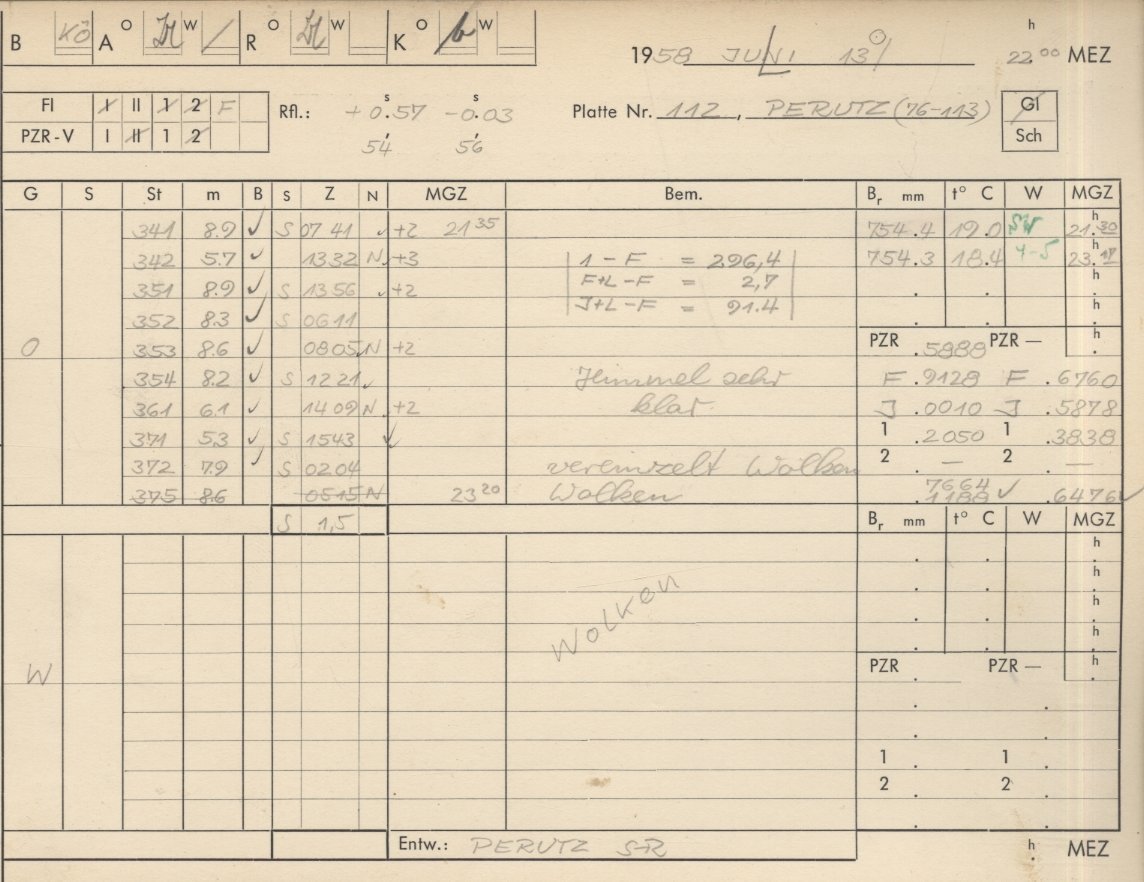 B KÖ A O W / R O W K O b W
1958 JUNI 13 22.00 h MEZ
FI I II 1 2 F
PZR-V I II 1 2
Rfl.: +0.57 s -0.03 s
54' 56'
Platte Nr. 112, PERUTZ (76-113)
Gl
Sch
G S St m B S Z N MGZ Bem. Br mm t° C W MGZ
341 8.9 ✓ S 07 41 ✓ +2 21 35 754.4 19.0 SW 21.30 h
342 5.7 ✓ 1332 N +3 1 - F = 296,4 754.3 18.4 4-5 23.17 h
351 8.9 ✓ S 1356 ✓ +2 F+L-F = 2,7 h
352 8.3 ✓ S 0611 J+L-F = 91.4 h
O 353 8.6 ✓ 0805 N +2 PZR .5888 PZR —
354 8.2 ✓ S 1221 Himmel sehr F .9128 F .6760
361 6.1 ✓ 1409 N +2 klar. J .0010 J .5878
371 5.3 ✓ S 1543 ✓ 1 .2050 1 .3838
372 7.9 ✓ S 0204 vereinzelt Wolken 2 — 2 —
375 8.6 0515 N 23 20 Wolken 7664 .1188 ✓ .6476 ✓
S 1,5 Br mm t° C W MGZ
h
h
h
Wolken h
W PZR PZR — h
1 1
2 2
Entw.: PERUTZ SR h MEZ